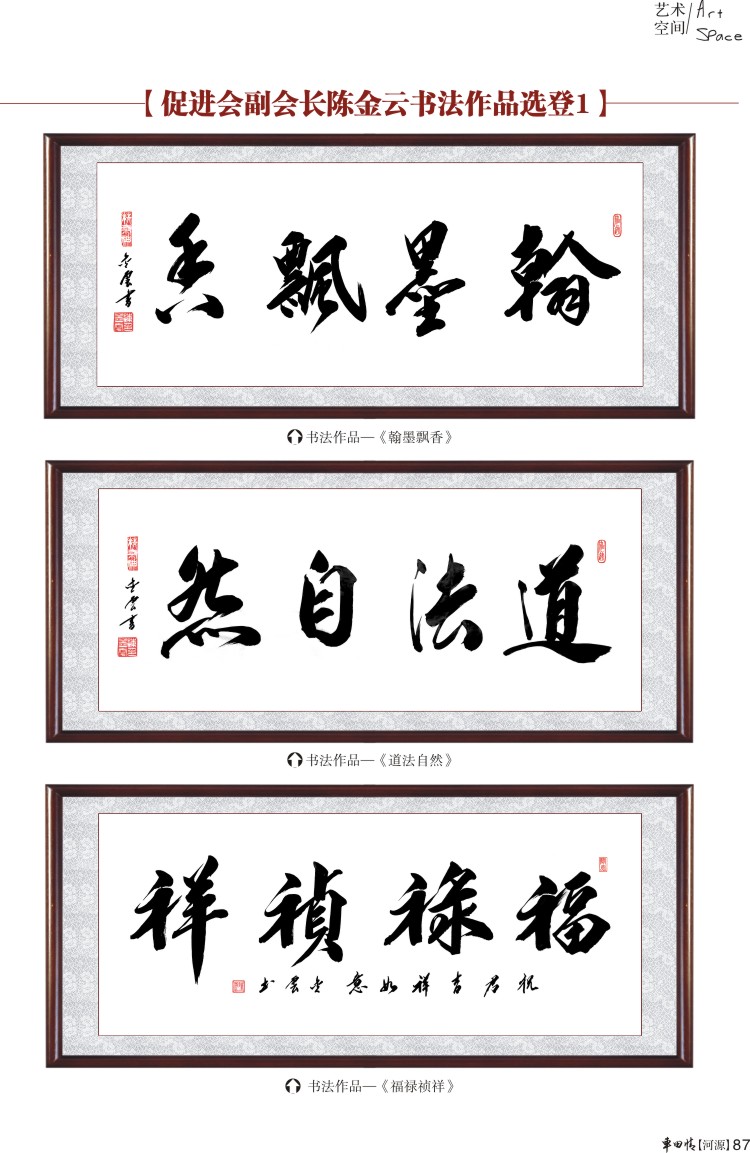 艺术 Art
空间 Space
【促进会副会长陈金云书法作品选登1】
翰墨飘香
金云书
书法作品—《翰墨飘香》
道法自然
金云书
书法作品—《道法自然》
福禄祯祥
祝君吉祥如意 金云书
书法作品—《福禄祯祥》
车田情【河源】87